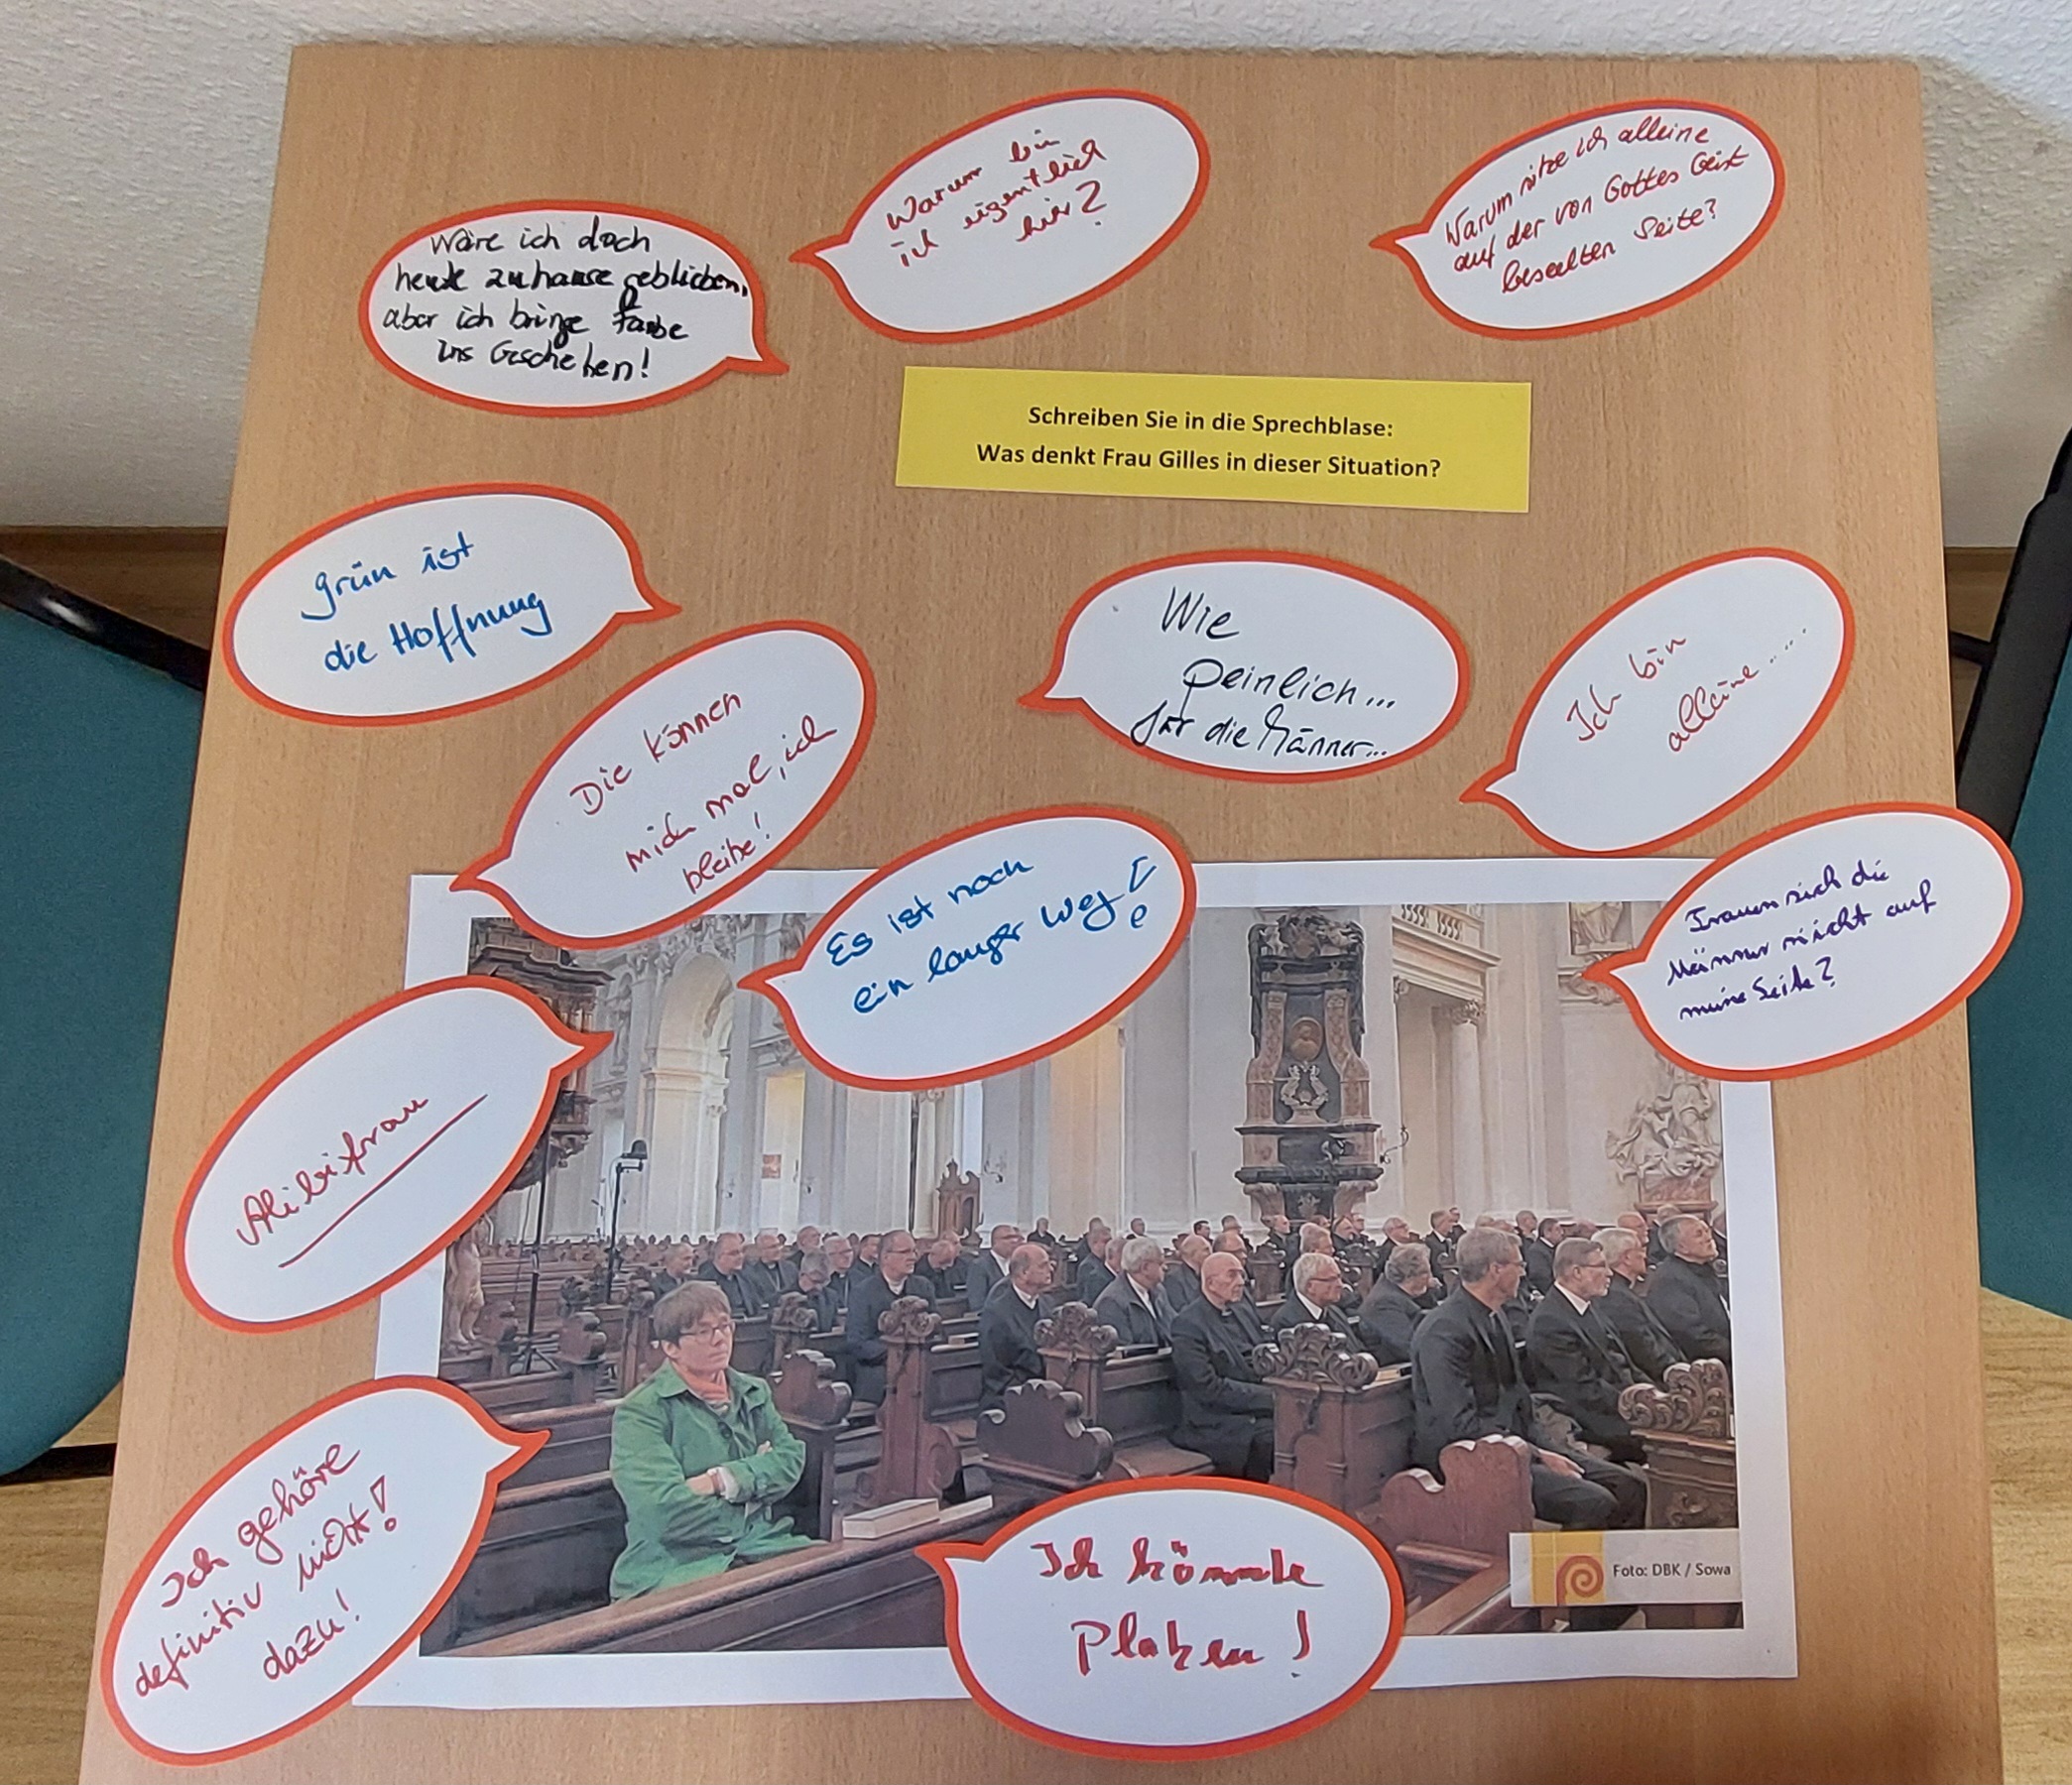 Wäre ich doch
heute zuhause geblieben,
aber ich bringe Farbe
ins Geschehen!
Warum bin
ich eigentlich
hier?
Warum sitze ich alleine
auf der von Gottes Geist
beseelten Seite?
Schreiben Sie in die Sprechblase:
Was denkt Frau Gilles in dieser Situation?
grün ist
die Hoffnung
Die können
mich mal, ich
bleibe!
Wie
peinlich...
für die Männer...
Ich bin
alleine.....
Es ist noch
ein langer Weg!
Trauen sich die
Männer nicht auf
meine Seite?
Alibifrau
Ich gehöre
definitiv nicht!
dazu!
Ich könnte
Platzen!
Foto: DBK / Sowa